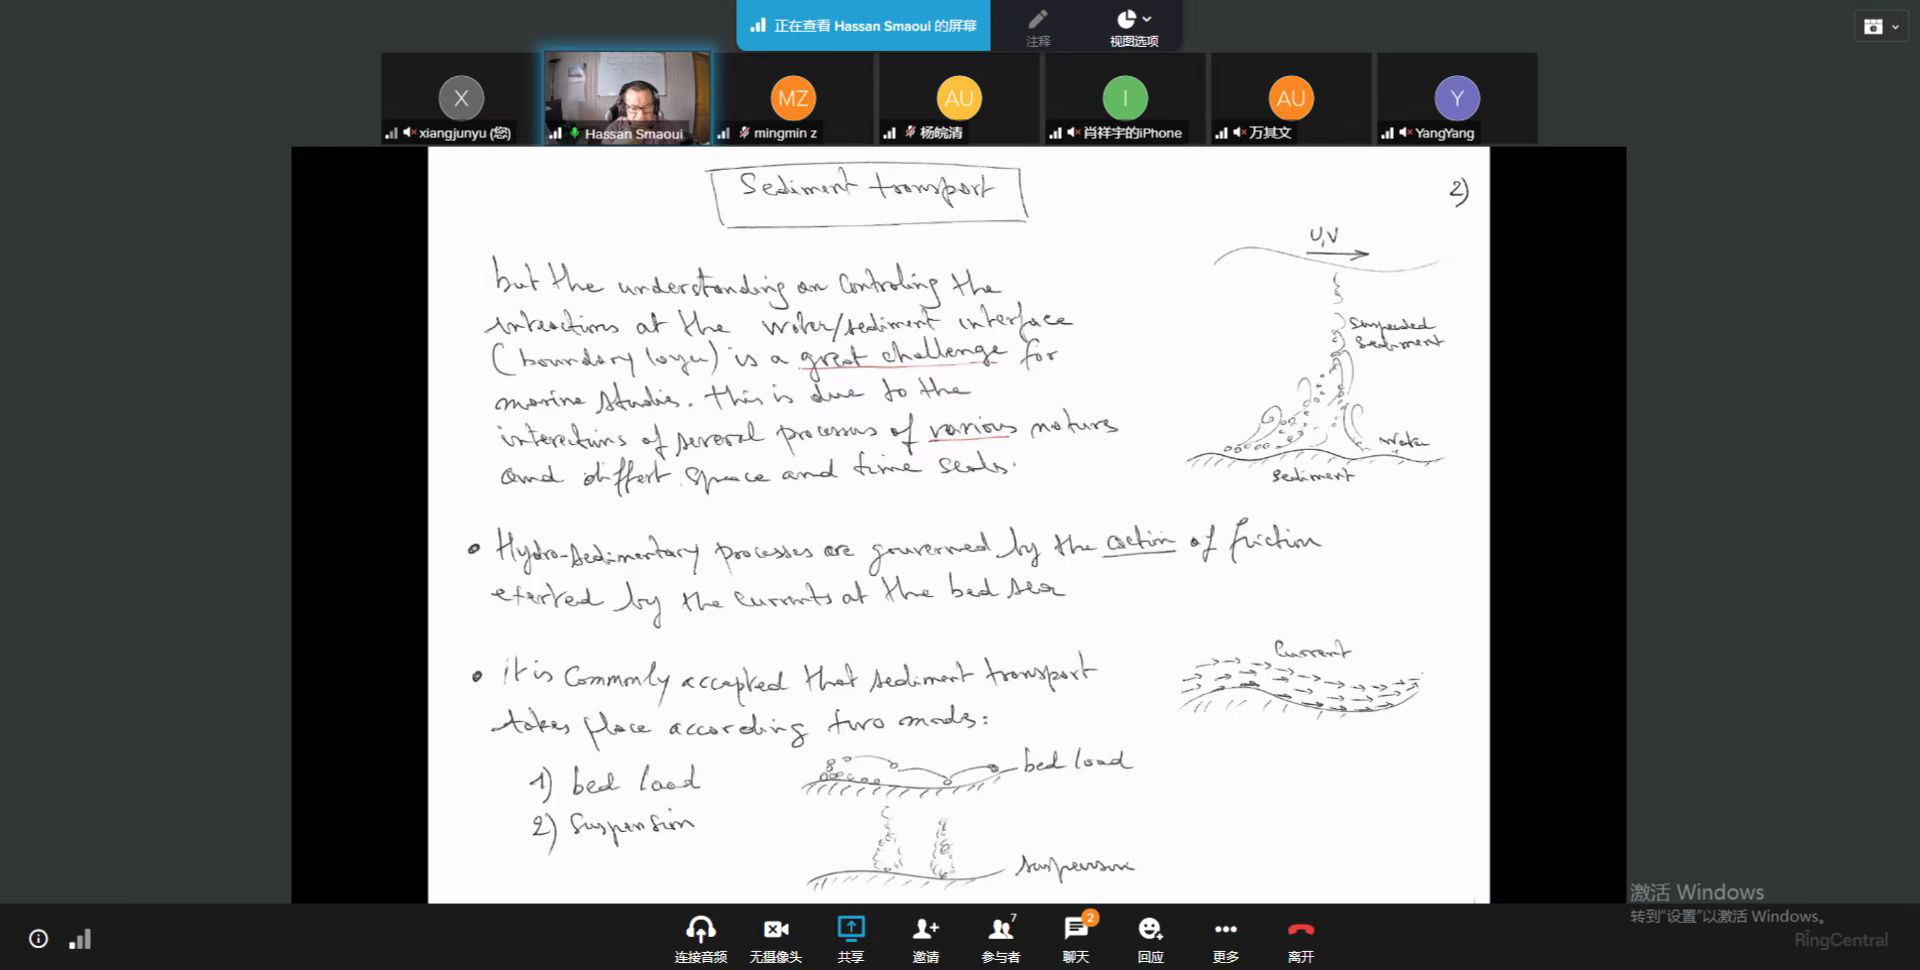 正在查看 Hassan Smaoui 的屏幕
注释
视图选项
X
xiangjunyu (您)
Hassan Smaoui
MZ
mingmin z
AU
杨皖清
I
肖祥宇的iPhone
AU
万其文
Y
YangYang
Sediment transport
2)
but the understanding an controling the
interactions at the water/sediment interface
(boundary layer) is a great challenge for
marine studies. This is due to the
interactions of several processus of various naturs
and differt space and time scals.
U,V
suspended
sediment
water
sediment
• Hydro-sedimentary processes are gouverned by the action of friction
exerted by the currents at the bed sea
• it is commonly accepted that sediment transport
takes place according two mods:
Current
1) bed load
2) suspension
bed load
suspension
激活 Windows
转到"设置"以激活 Windows。
RingCentral
连接音频
无摄像头
共享
邀请
7
参与者
2
聊天
回应
更多
离开